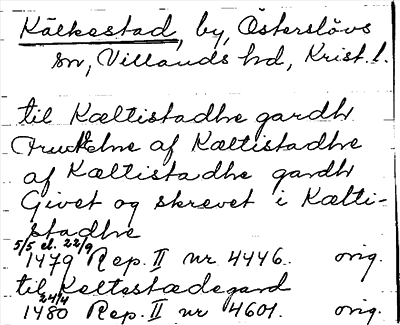 Kälkestad, by, Österslövs
sn, Villands hd, Krist. l.
til Kæltistadhe gardh
Fruethne af Kæltistadhe
af Kæltistadhe gardh
Givet og skrevet i Kælti-
stadhe
5/5 el. 22/9
1479 Rep. II nr 4446. orig.
til Keltestædegard
24/4
1480 Rep. II nr 4601. orig.